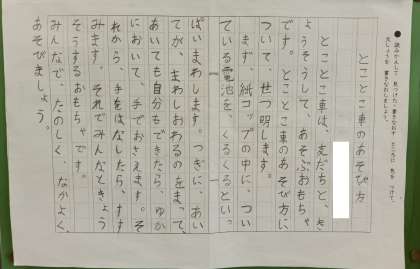 ●読みかえして、見つけた書きなおす ところに 気を つけて、
文しょうを 書きなおしましょう。
とことこ車のあそび方
とことこ車は、友だちと、き
ょうそうして、あそぶおもちゃ
です。とことこ車のあそび方に
ついて、せつ明します。
まず、紙コップの中に、つい
ている電池を、くるくるといっ
ぱいまわします。つぎに、あい
てが、まわしおわるのをまって、
あいても自分もできたら、ゆか
において、手でおさえます。そ
れから、手をはなしたら、すす
みます。それでみんなときょう
そうするおもちゃです。
みんなで、たのしく、なかよく、
あそびましょう。